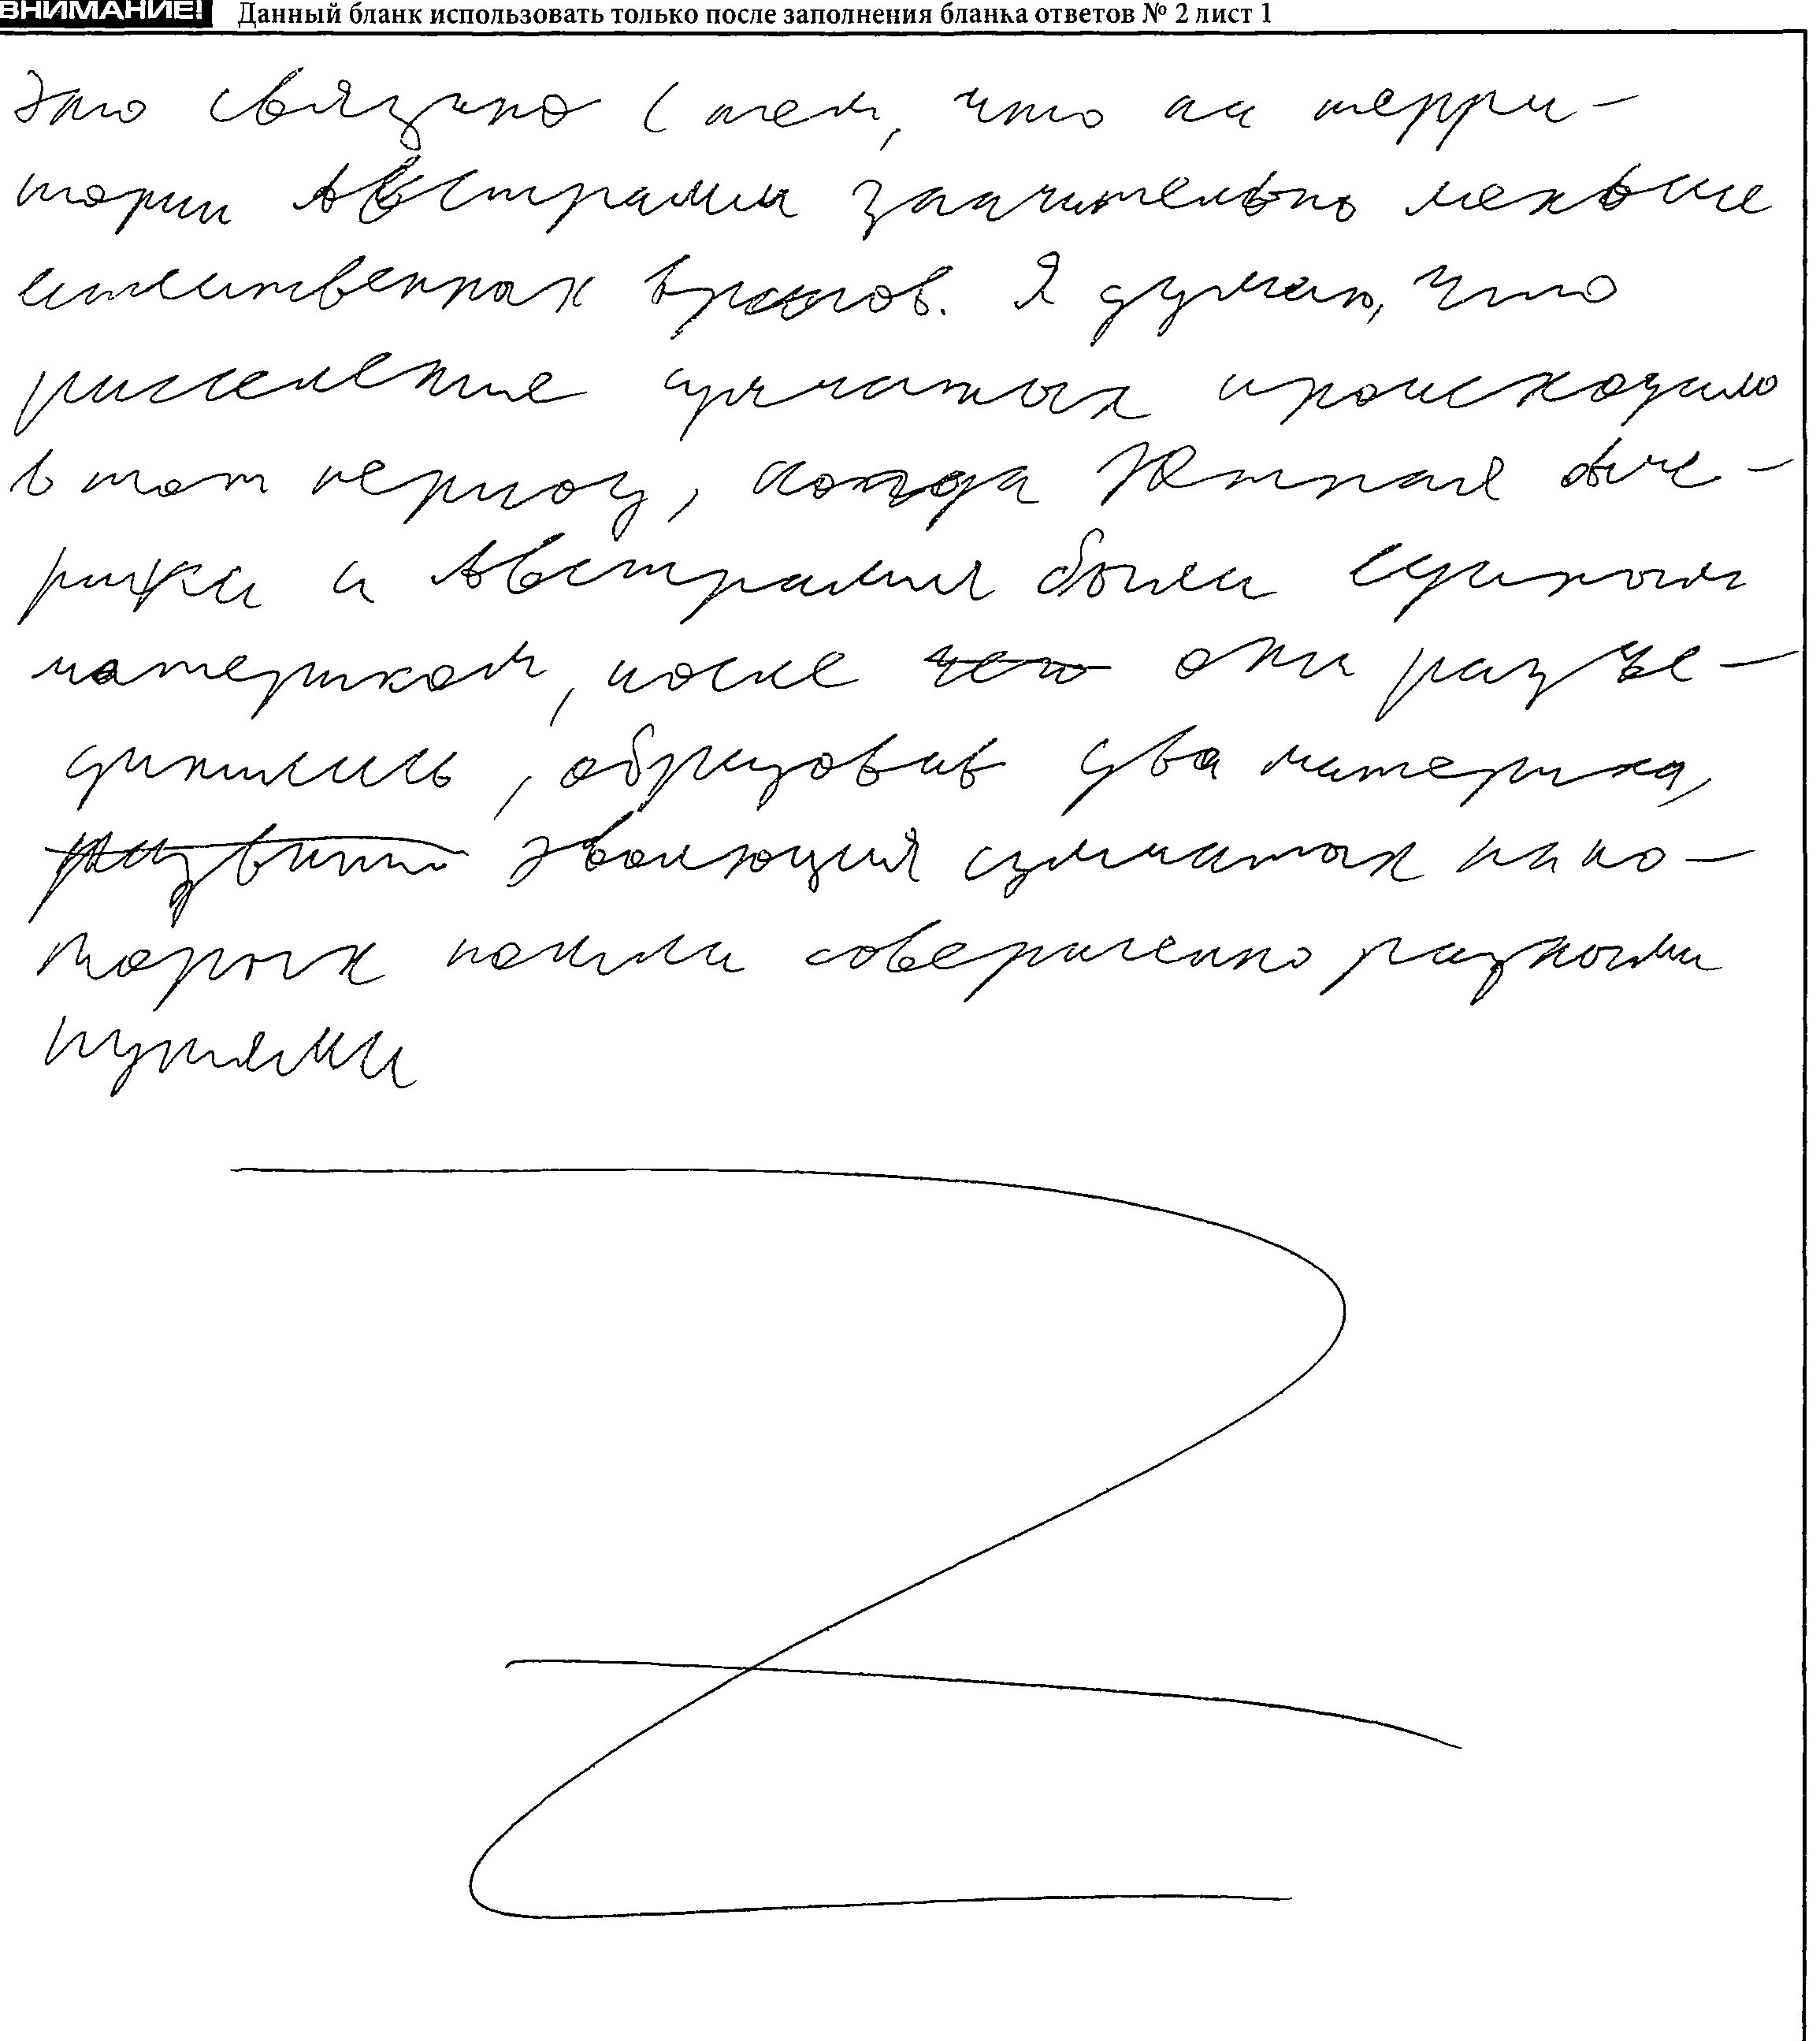 ВНИМАНИЕ! Данный бланк использовать только после заполнения бланка ответов № 2 лист 1
это связано с тем, что на терри-
тории Австралии значительно меньше
естественных врагов. Я думаю, что
расселение сумчатых происходило
в тот период, когда Южная Аме-
рика и Австралия были единым
материком, после чего они разъе-
динились, образовав два материка,
развити эволюция сумчатых на ко-
торых пошли совершенно разными
путями